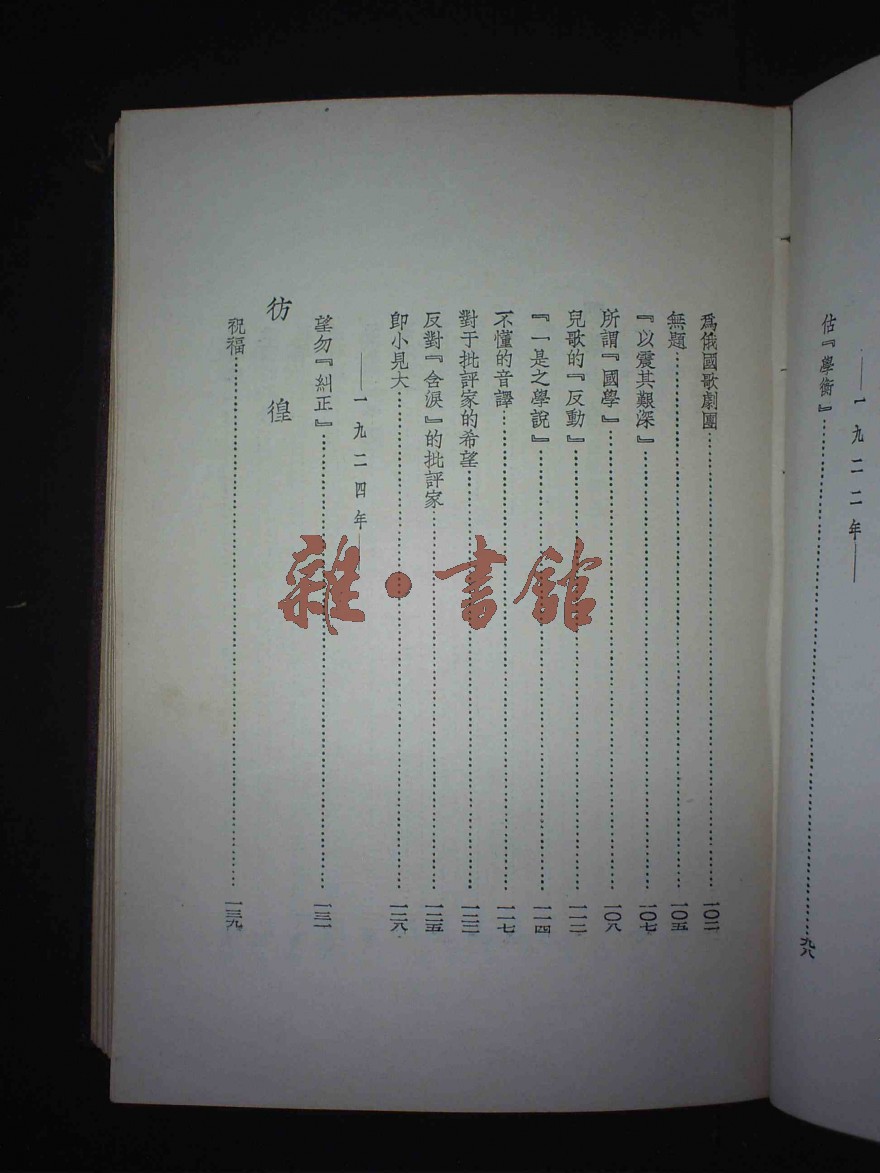 ——一九二二年——
估『學衡』……九八
爲俄國歌劇團……一〇二
無題……一〇五
『以震其艱深』……一〇七
所謂『國學』……一〇八
兒歌的『反動』……一一二
『一是之學說』……一一四
不懂的音譯……一一七
對于批評家的希望……一二三
反對『含淚』的批評家……一二五
卽小見大……一二八
——一九二四年——
望勿『糾正』……一三一
彷徨
祝福……一三九
雜·書館